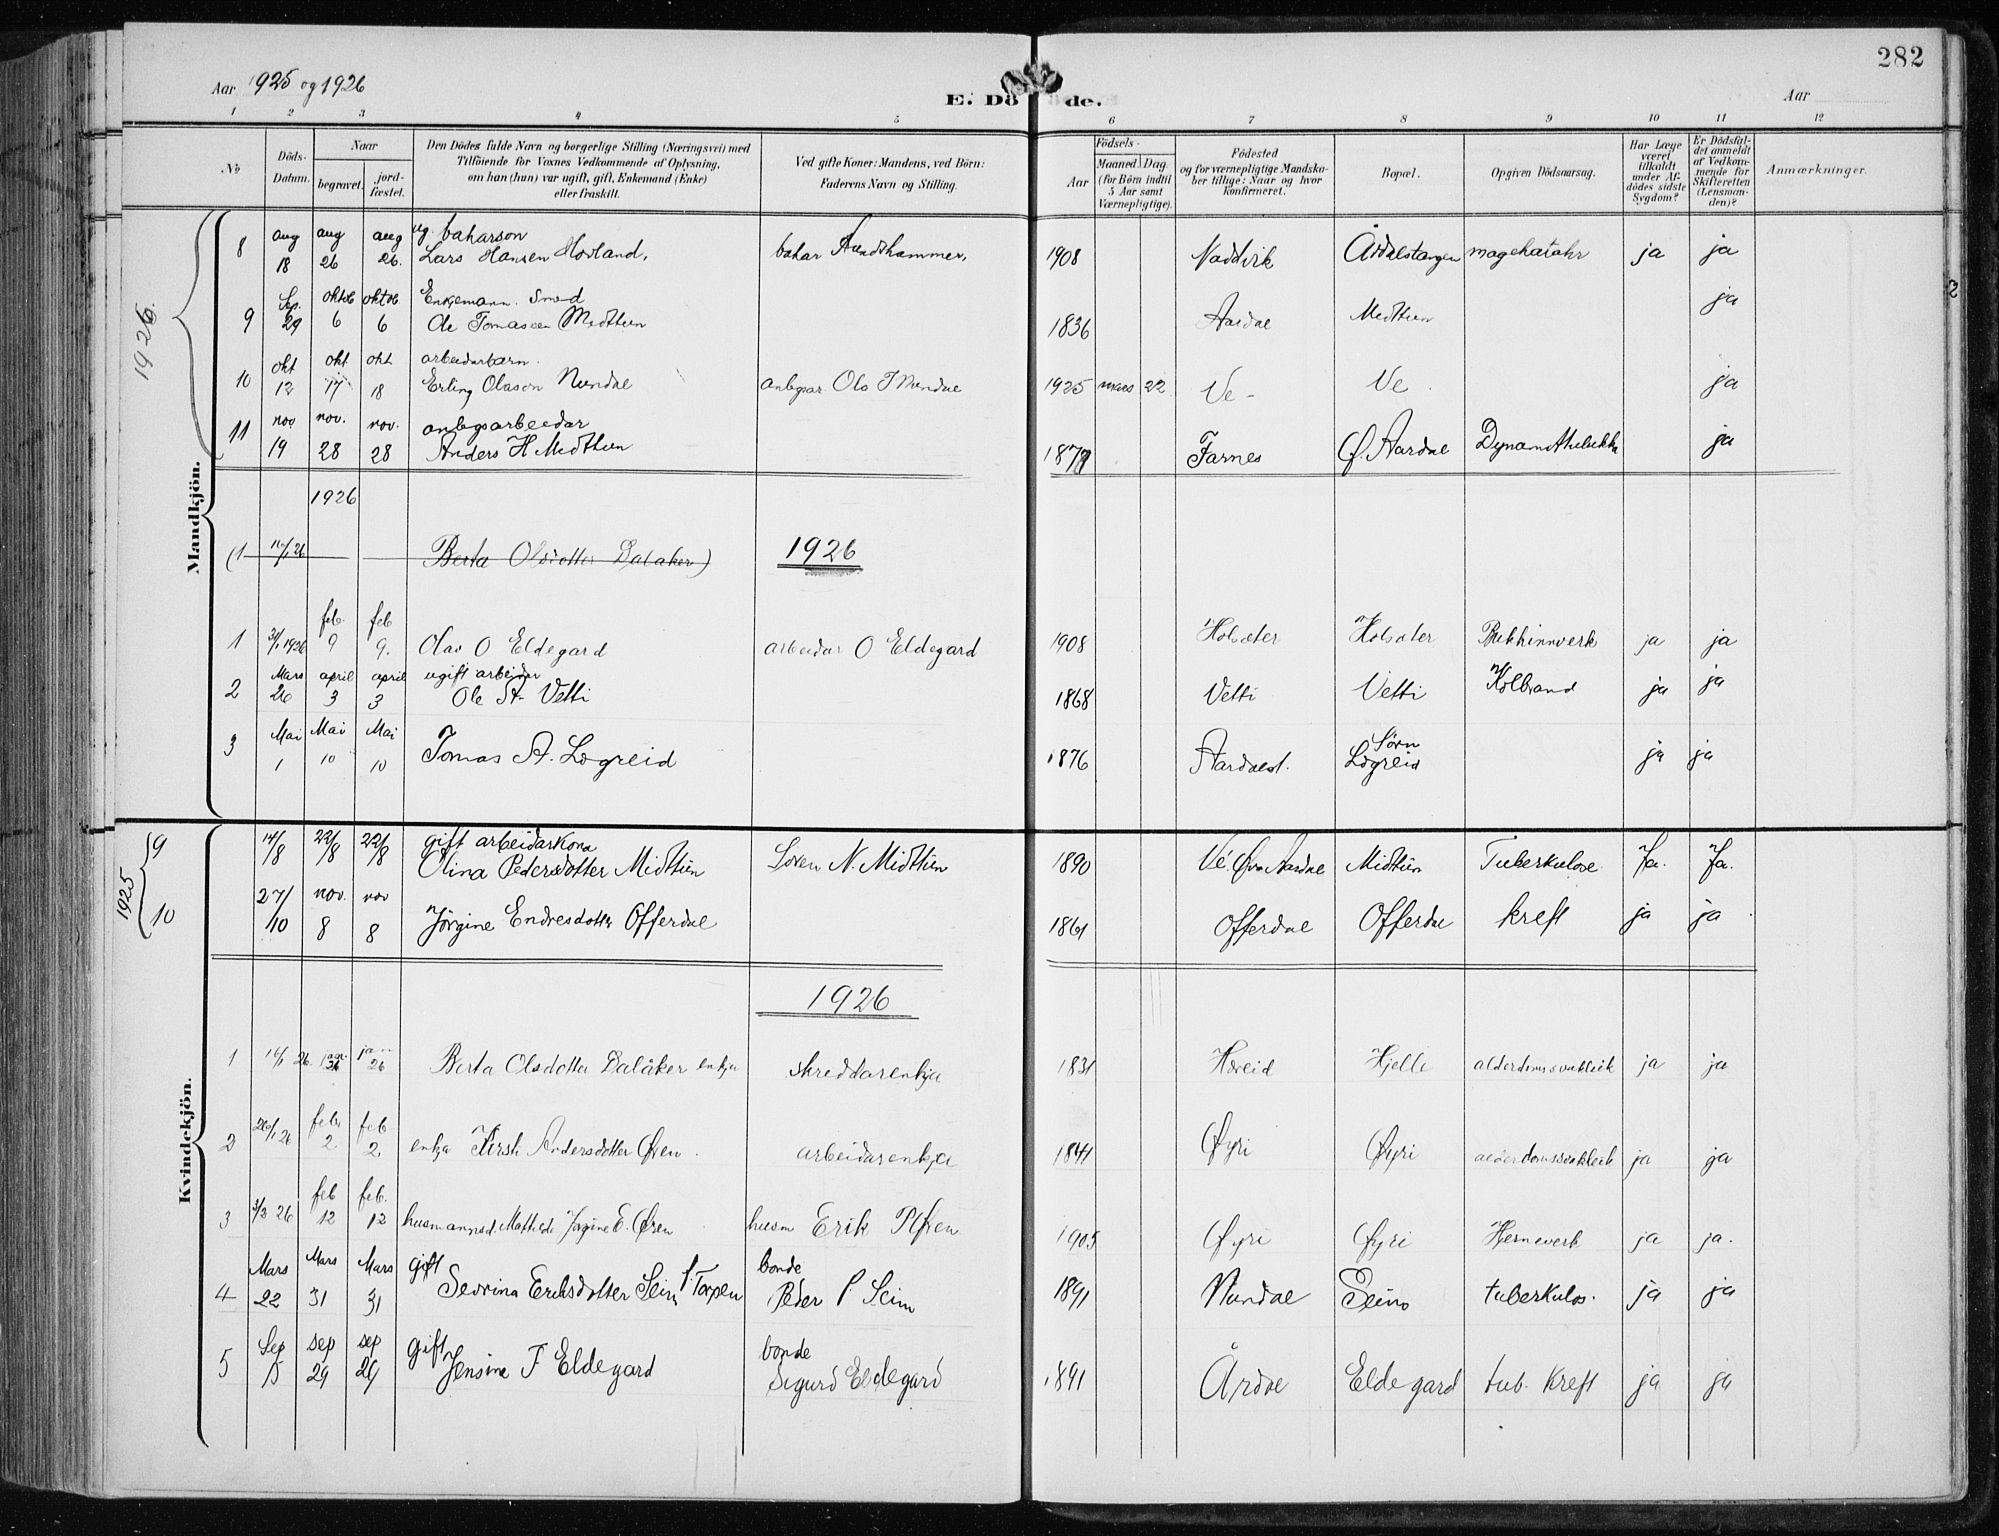 282
Aar 1925 og 1926
E. Dö de.
Aar
1 2 3 4 5 6 7 8 9 10 11 12
No
Döds-Datum.
Naar
begravet.
jord-fæstet.
Den Dödes fulde Navn og borgerlige Stilling (Næringsvei) med
Tilföiende for Voxnes Vedkommende af Oplysning,
om han (hun) var ugift, gift, Enkemand (Enke)
eller fraskilt.
Ved gifte Koner: Mandens, ved Börn:
Faderens Navn og Stilling.
Födsels-
Aar
Maaned Dag
(for Börn indtil
5 Aar samt
Værnepligtige).
Födested
og for værnepligtige Mandska-
ber tillige: Naar og hvor
konfirmeret.
Bopæl.
Opgiven Dödsaarsag.
Har Læge
været
tilkaldt
under Af-
dödes sidste
Sygdom?
Er Dödsfal-
det anmeldt
af Vedkom-
mende for
Skifteretten
(Lensman-
den)?
Anmærkninger.
Mandkjön.
8 aug 18 aug 26 aug 26. ug. bakarson
Lars Hansen Hovland, bakar 1908 Naddvik Årdalstangen magekatahr ja ja
9 Sep. 29 oktob 6 oktob 6 Enkjemann. Smed
Ole Tomassen Midttun 1836 Aardal Midttun ja
10 okt 12 okt 17 okt 18 arbeidarbarn.
Erling Olason Nundal Ola Nundal 1925 mars 22 Ve Ve ja
11 nov 19 nov. 28 nov. 28 anlegsarbeidar
Anders H Midttun Farnes Ø. Aardal ja
1926
(1 Berta Olsdotter Dalaker) 1926
1 31/1 1926 feb. 9 feb 9. Olav O Eldegard arbeidar O Eldegard 1908 Holsæter Holsæter Bukhinnverk ja ja
2 Mars 26 april 3 april 3 ugift arbeidar
Ole A. Vetti 1868 Vetti Vetti Kolbrand ja ja
3 Mai 1 Mai 10 Mai 10 Tomas A. Lægreid 1876 Aardalst. Sørn
Lægreid ja ja
Kvindekjön.
1925
9 14/8 22/8 22/8 gift arbeidarkona
Olina Pedersdotter Midttun Soren N. Midttun 1890 Ve. Øvre Aardal Midttun Tuberkulose Ja. Ja.
10 27/10 nov. 8 nov 8 Jørgine Endresdotter Offerdal 1861 Offerdal Offerdal kreft ja ja
1926
1 26. 26 Berta Olsdotter Dalåker enkja skreddarenkja 1831 Hæreid Hjelle alderdomssvakleik ja ja
2 26/1 26 feb 2 feb 2 enkja Kirsti Andersdotter Øren arbeidarenkja 1841 Øyri Øyri alderdomssvakleik ja ja
3 3/2 26 feb 12 feb. 12 husmannsd. Mathilde Jørgine E. Øren husm Erik P Øren 1905 Øyri Øyri Hjerneverk ja ja.
4 Mars 22 Mars 31 Mars 31 gift
Sevrina Eriksdotter Seim f. Torpen bonde
Peder P Seim 1891 Nundal Seim tuberkulos. ja ja
5 Sep 15 sep 29 sep 29 gift
Jensine T Eldegard bonde
Sigurd Eldegard 1891 Årdal Eldegard tub. kreft ja ja